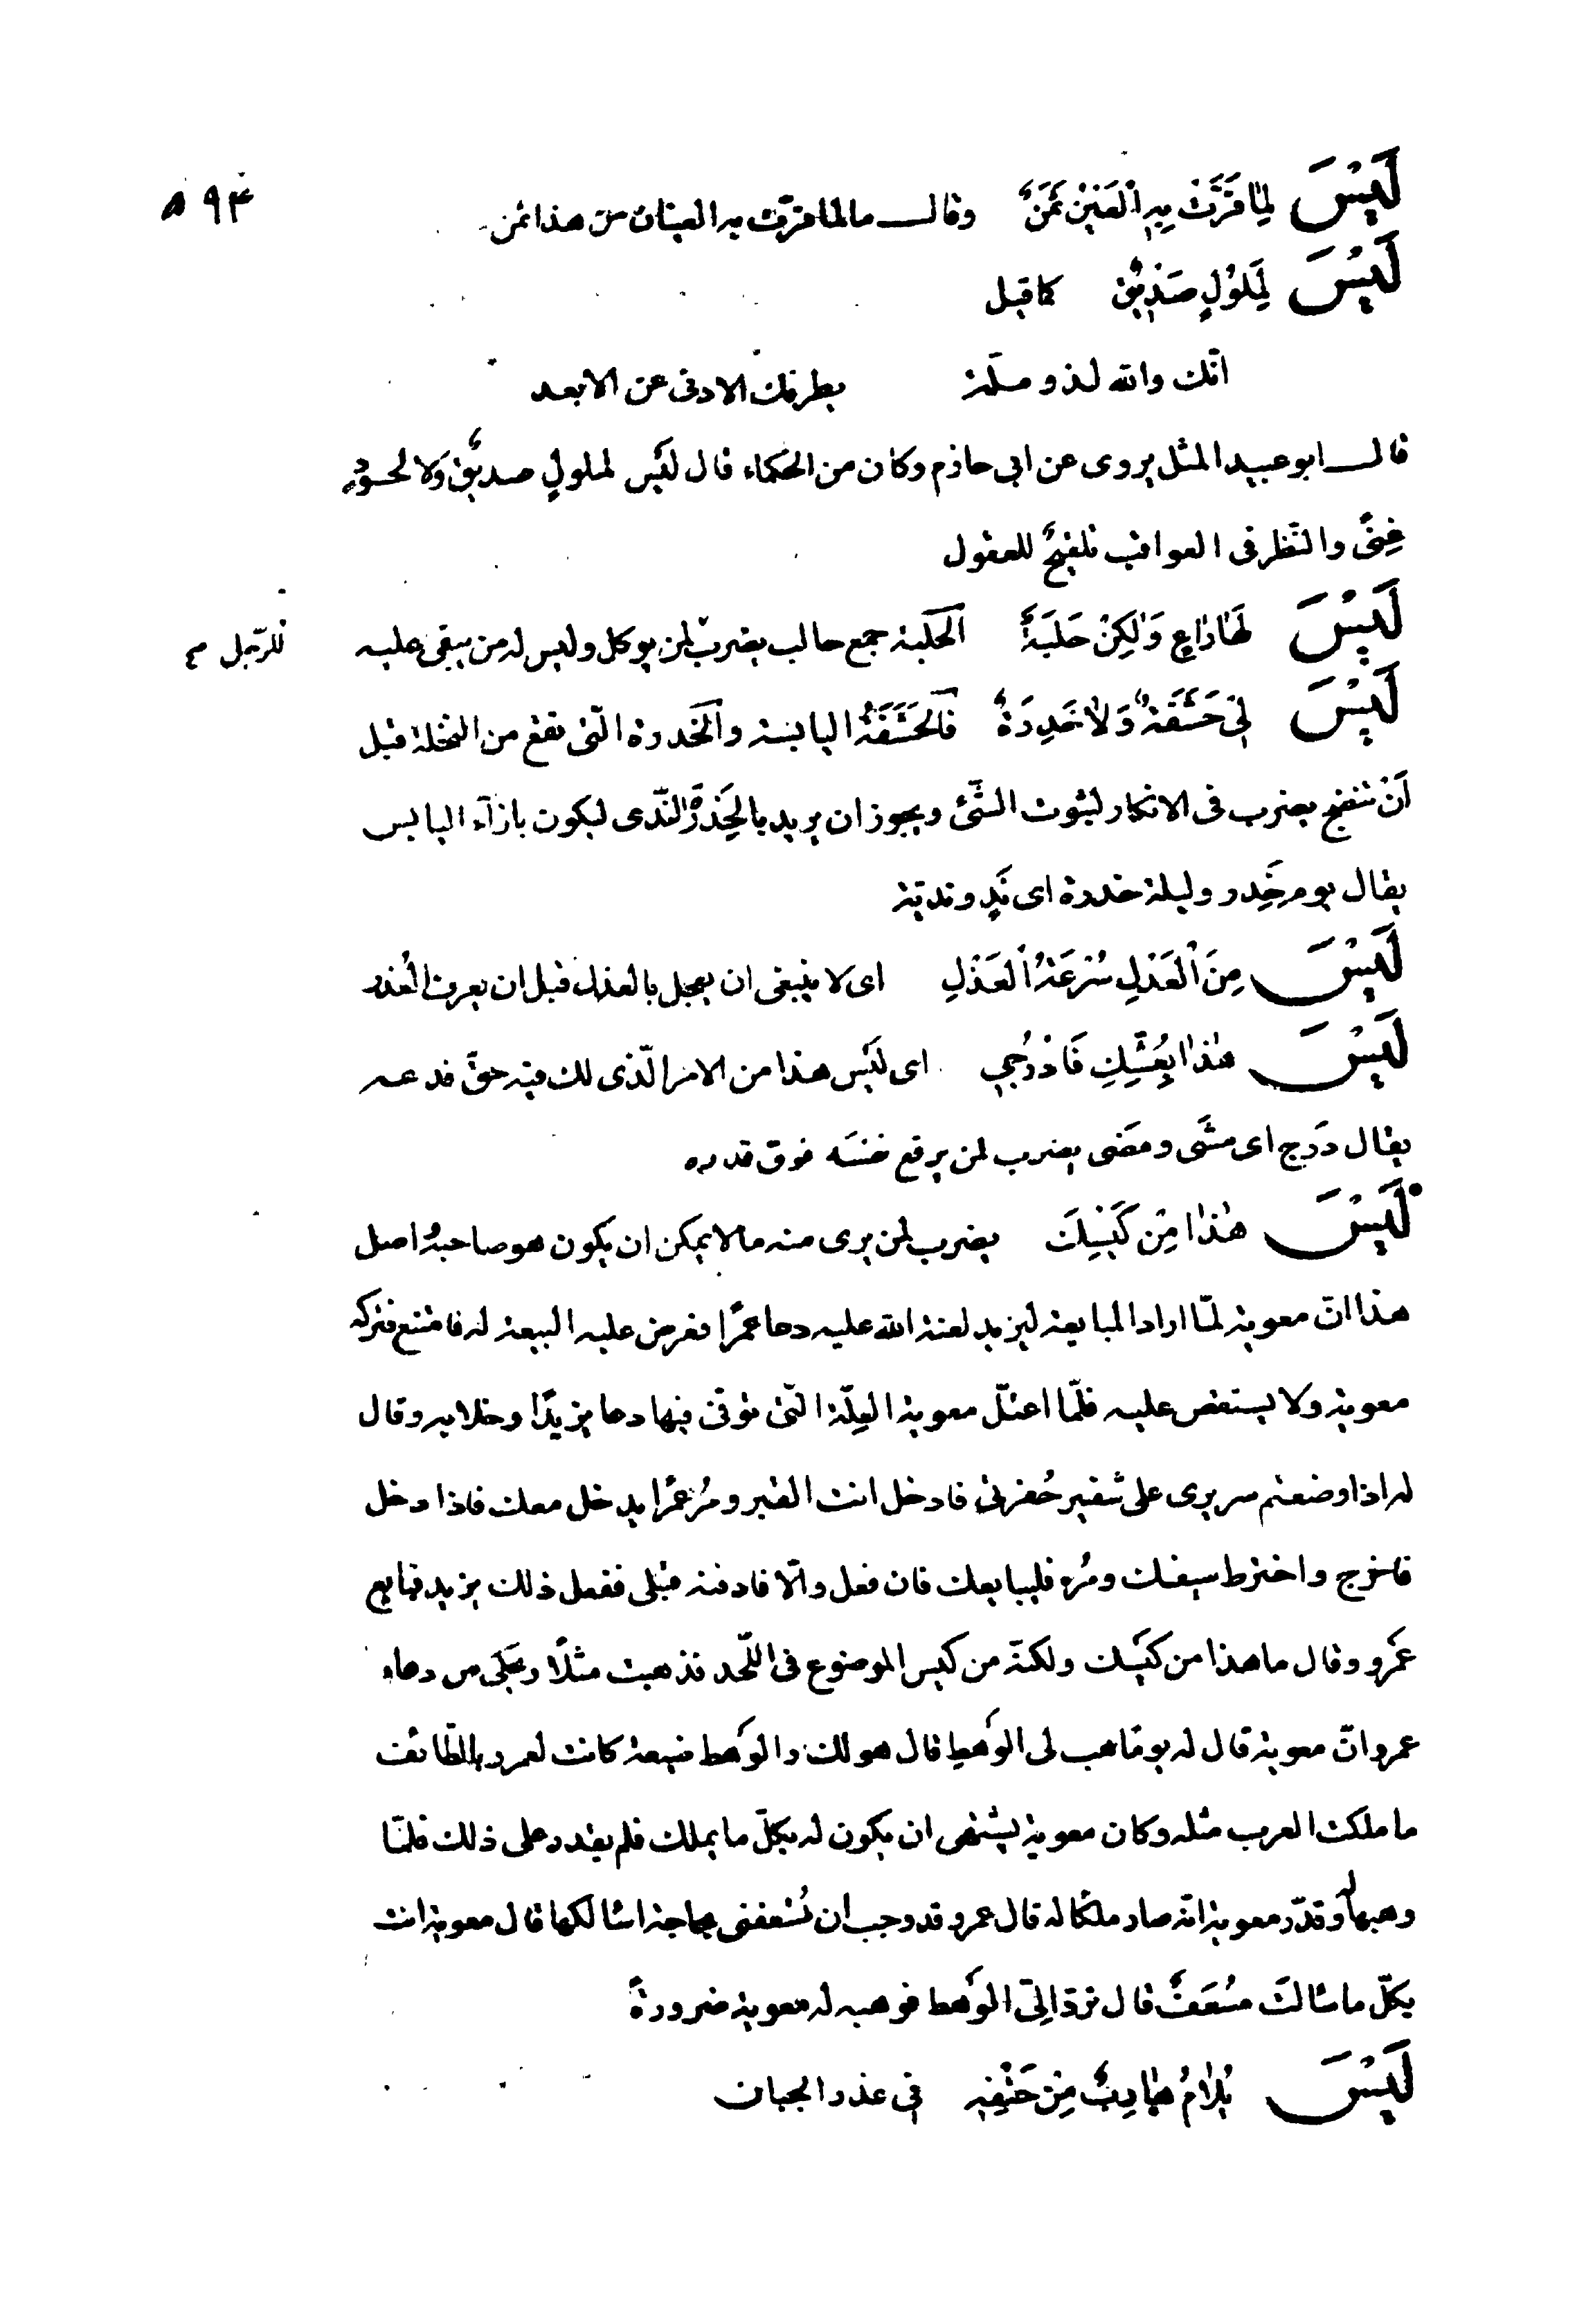 ۵۹۴
لَيْسَ لِمٰا قَرَّتْ بِهِ الْعَيْنُ ثَمَنٌ وقال ما لما قرّت به العينان من هذا ثمن
لَيْسَ لِمَلُوْلٍ صَدِيْقٌ كما قيل
انّك والله لذو ملّة يطرفك الادنى عن الابعد
قال ابو عبيد المثل يروى عن ابى حازم وكان من الحكماء قال لَيْس لملولٍ صديقٌ وَلا لحسودٍ
غِنًى والنّظر فى العواقب تلقيحٌ للعقول
لَيْسَ لَهٰا رٰاعٍ وَلٰكِنْ حَلَبَةٌ الحَلَبة جمع حالب يضرب لمن يوكل وليس له من يبقى عليه للرّجل
لَيْسَ لِىْ حَشَفَةٌ وَلاٰ خَدِرَةٌ فَالحَشَفَةُ اليابسة والخَدرة الّتى تقع من النّخلة قبل
اَنْ تنضج يضرب فى الانكار لثبوت الشّئ ويجوز ان يريد بالخَدِرَة النّدى ليكون بازآء اليابس
يقال يوم خَدِر وليلة خدرة اى نَدٍ وندية
لَيْسَ مِنَ الْعَدْلِ سُرْعَةُ الْعَذْلِ اى لا ينبغى ان يعجل بالعذل قبل ان يعرف العُذر
لَيْسَ هٰذٰا بِعُشِّكِ فَادْرُجِي اى لَيْس هذا من الامر الّذى لك فيه حقّ فدعه
يقال دَرَج اى مشَى ومضَى يضرب لمن يرفع نفسَه فوق قدره
لَيْسَ هٰذٰا مِنْ كَيْسِكَ يضرب لمن يرى منه ما لا يمكن ان يكون هو صاحبهُ اصل
هذا انّ معوية لمّا اراد المبايعة ليزيد لعنة الله عليه دعا عمرًا فعرض عليه البيعة له فامتنع فتركه
معوية ولا يستقض عليه فلمّا اعتلّ معوية العِلّة الّتى توفّى فيها دعا يزيدًا وخلا به وقال
له اذا وضعتم سريرى على شفير حُفرتى فادخل انت القبر ومُر عمرًا يدخل معك فاذا دخل
فاخرج واخترط سيفك ومُره فليبايعك فان فعل والّا فادفنه قبلى ففعل ذلك يزيد فبايع
عمَرو وقال ما هذا من كَيْسك ولكنّه من كيس الموضوع فى اللّحد فذهبت مثلًا وحكى من دهاء
عمرو انّ معوية قال له يومًا هب لى الوَهط قال هو لك والوَهط ضيعة كانت لعمرو بالطّائف
ما ملكت العرب مثله وكان معوية يشتهى ان يكون له بكلّ ما يملك فلم يقدر على ذلك فلمّا
وهبها له وقدّر معوية انّه صار ملكًا له قال عمرو قد وجب ان تُسْعفنى بحاجة اسْالكها قال معوية انت
بكلّ ما سْالتَ مسُعَفٌ قال تردّ الِىّ الوَهط فوهبه له معوية ضرورةً
لَيْسَ يُلاٰمُ هٰارِبٌ مِنْ حَتْفِهِ فى عذر الجبان